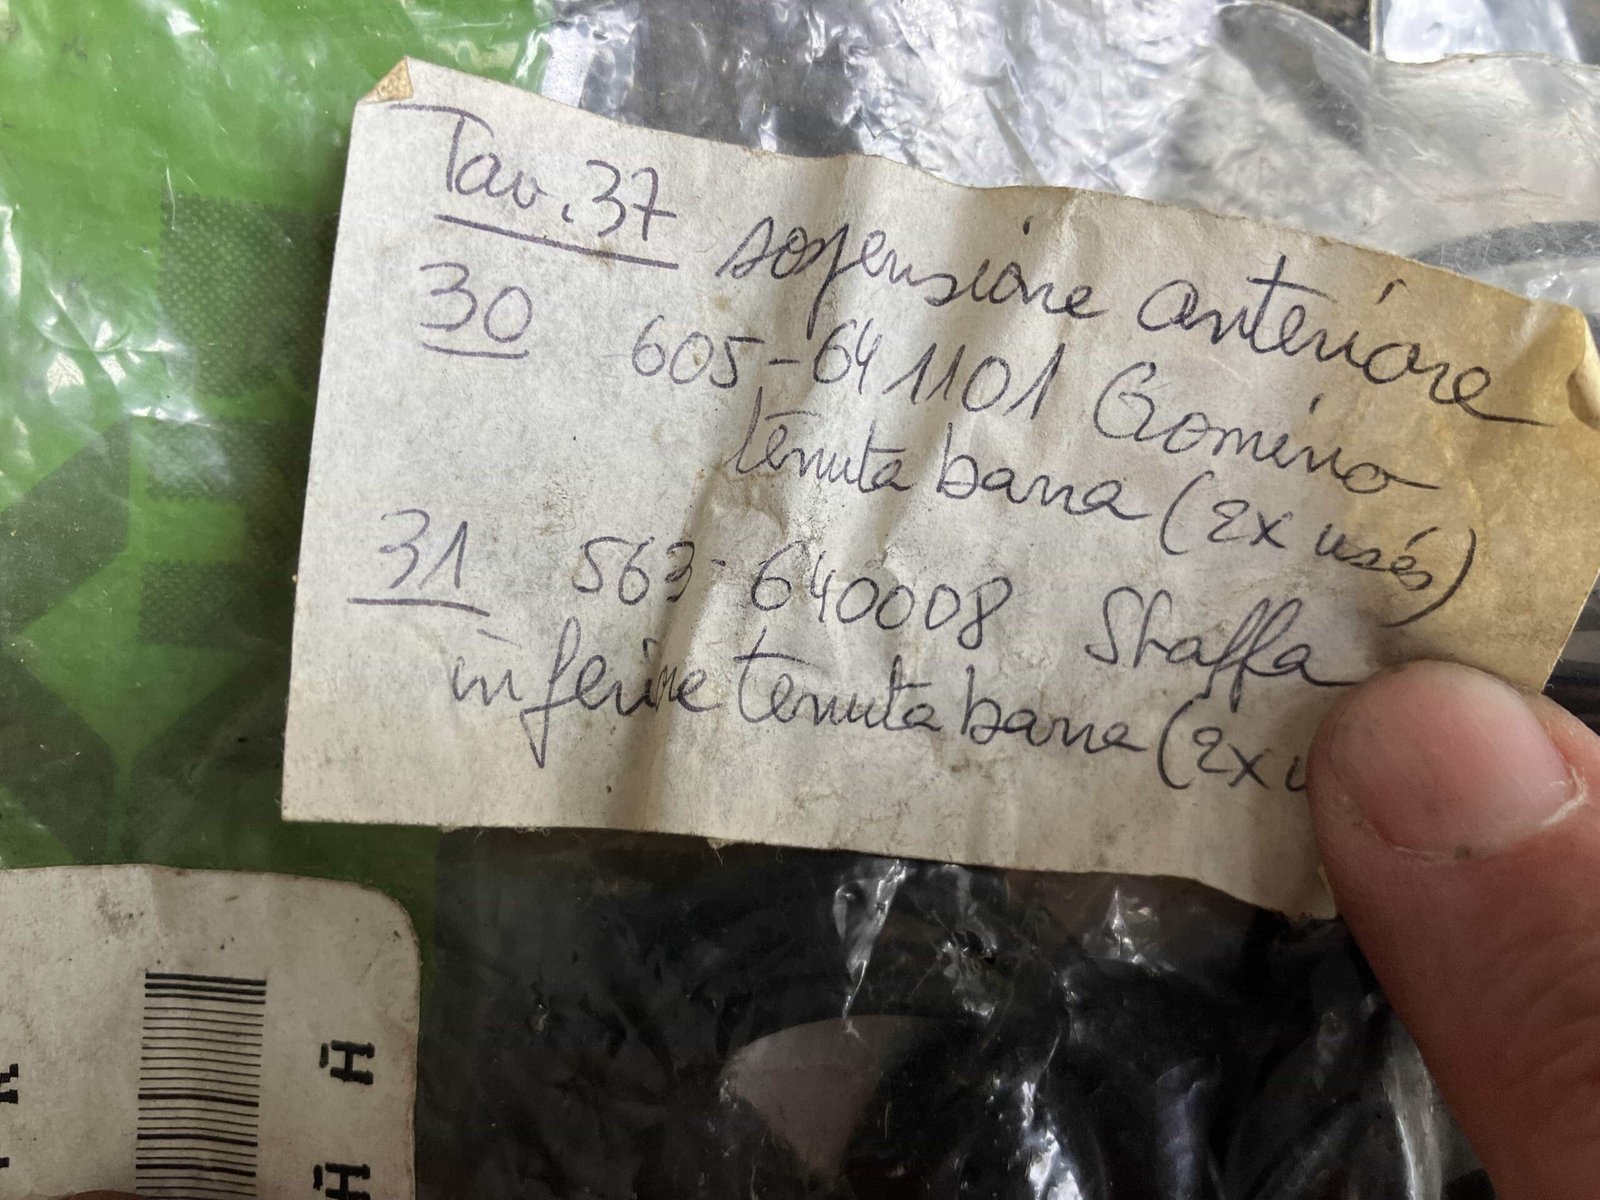 Tav. 37 sospensione anteriore
30 605-641101 Gommino
tenuta barra (2x usés)
31 563-640008 Staffa
inferiore tenuta barra (2x
H
H